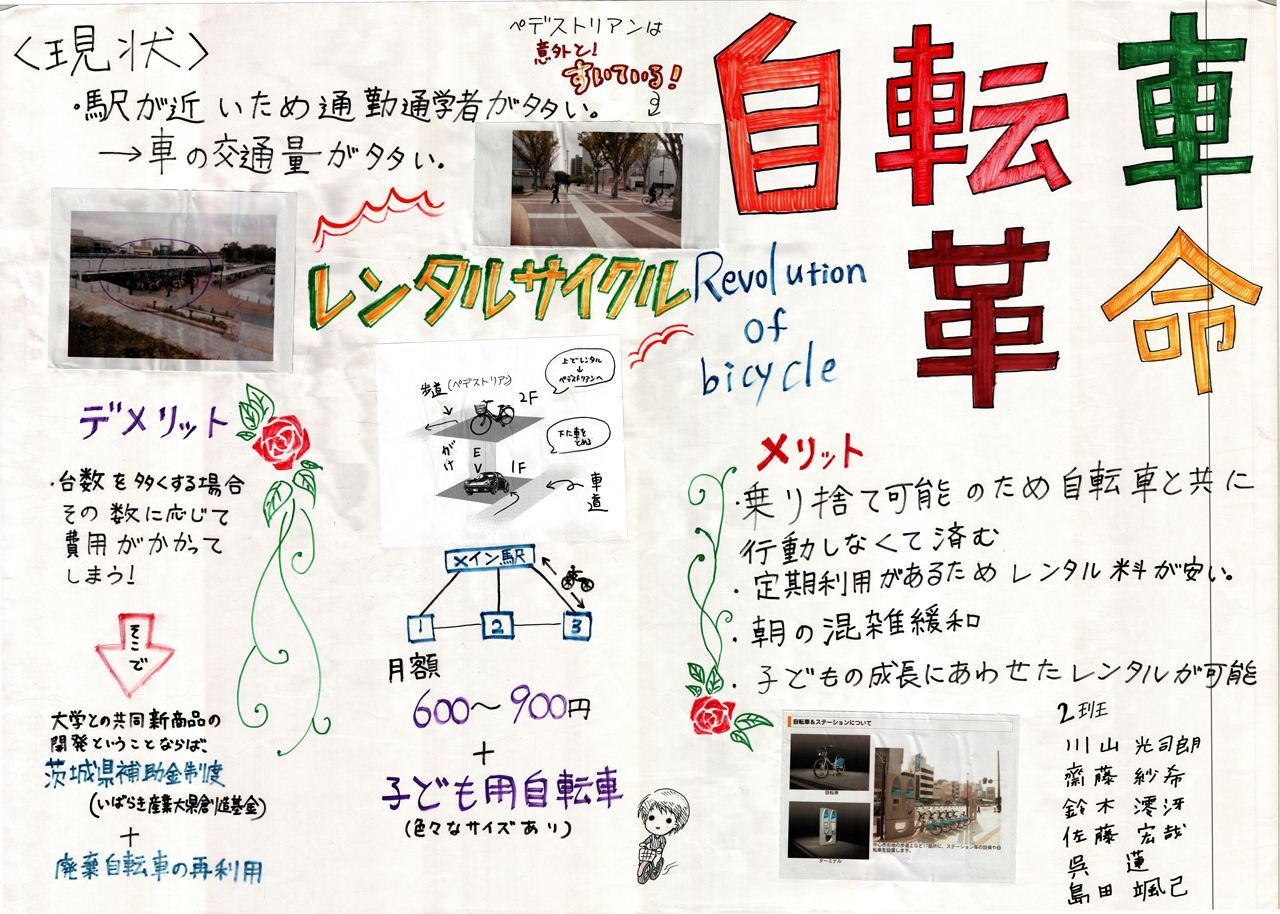 自転車
革命
Revolution
of
bicycle
<現状>
・駅が近いため通勤通学者が多い。
→車の交通量が多い。
ペデストリアンは
意外と!
すいている!
レンタルサイクル
歩道(ペデストリアン)
上でレンタル
↓
ペデストリアンへ
2F
がけ
EV
下に車をとめる
1F
車道
メイン駅
1
2
3
月額
600〜900円
+
子ども用自転車
(色々なサイズあり)
デメリット
・台数を多くする場合
その数に応じて
費用がかかって
しまう!
そこで
大学との共同新商品の
開発ということならば、
茨城県補助金制度
(いばらき産業大県創造基金)
+
廃棄自転車の再利用
メリット
・乗り捨て可能のため自転車と共に
行動しなくて済む
・定期利用があるためレンタル料が安い。
・朝の混雑緩和
・子どもの成長にあわせたレンタルが可能
自転車&ステーションについて
自転車
ターミナル
2班
川山 光司朗
齋藤 紗希
鈴木 澪冴
佐藤 宏哉
呉 蓮
島田 颯己